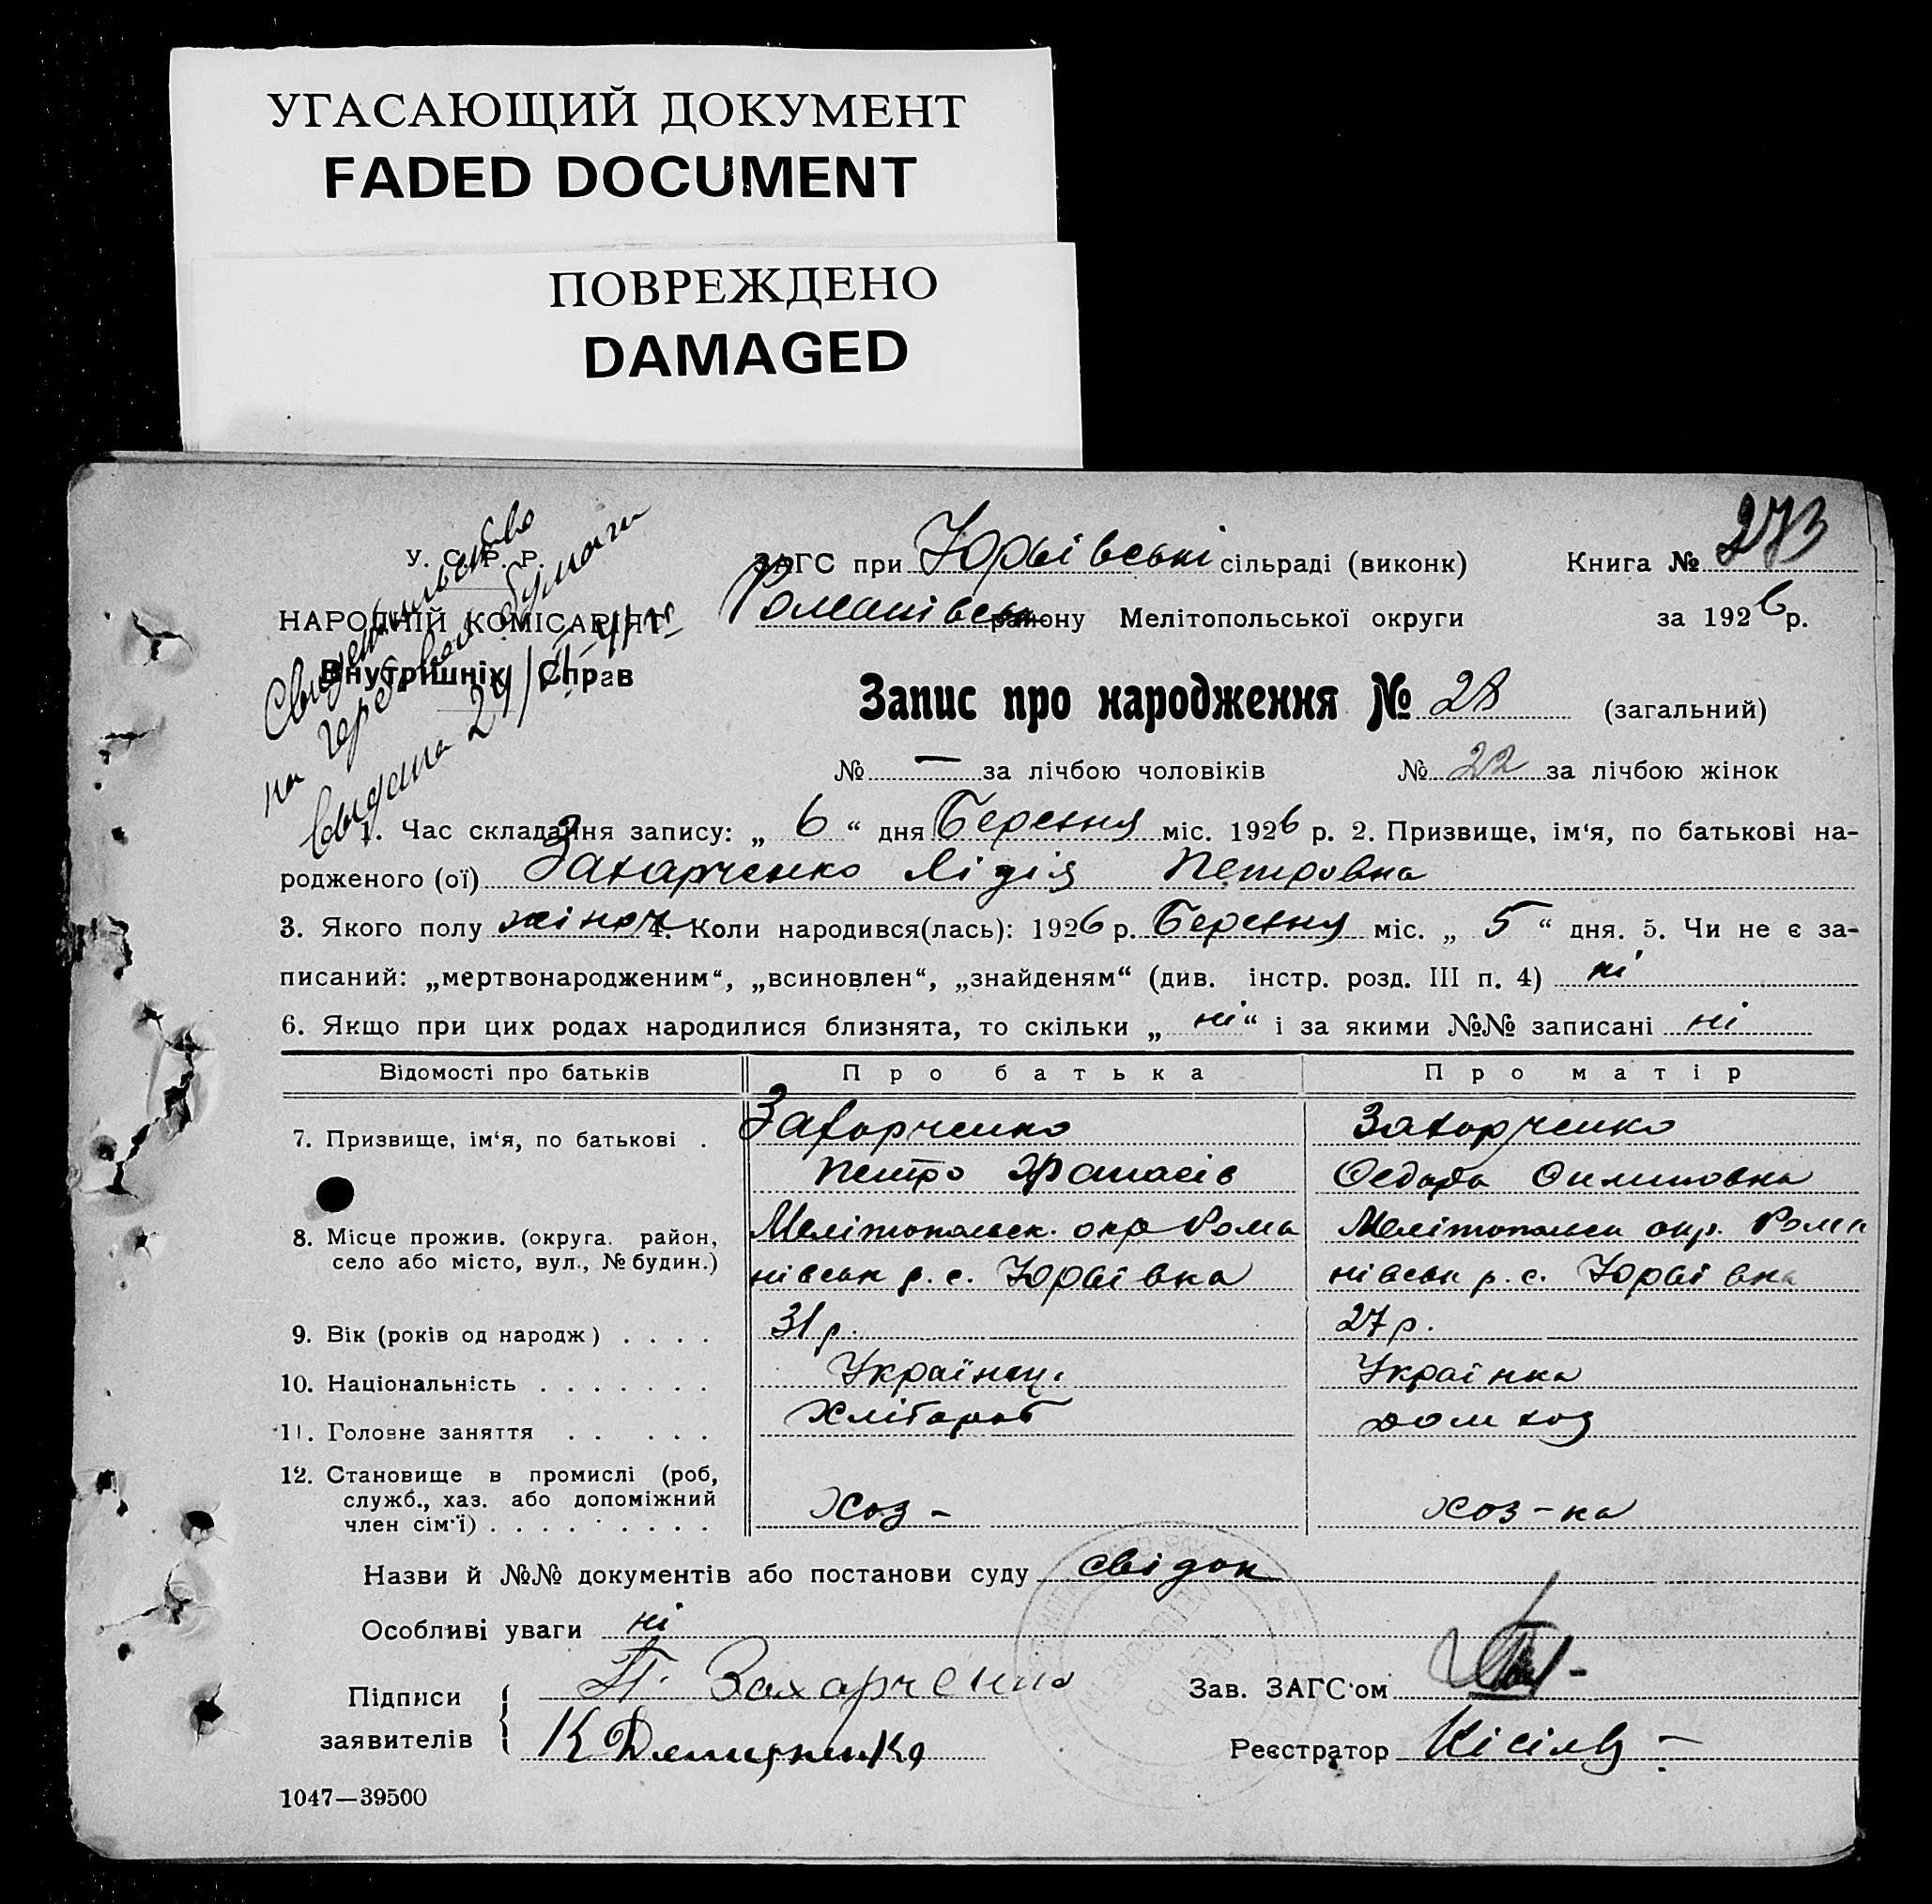 УГАСАЮЩИЙ ДОКУМЕНТ
FADED DOCUMENT
ПОВРЕЖДЕНО
DAMAGED
У. С. Р. Р.
НАРОДНІЙ КОМІСАРІЯТ
Внутришніх Справ
Свидетельство
на гербовой бумаги
выдана 24/II-41 г
ЗАГС при Юрьівські сільраді (виконк) Книга № 273
Романівськ району Мелітопольської округи за 1926 р.
Запис про народження № 28 (загальний)
№ — за лічбою чоловіків № 22 за лічбою жінок
1. Час складання запису: „ 6 “ дня Березня міс. 1926 р. 2. Призвище, ім‘я, по батькові на-
родженого (ої) Захарченко Лідія Петровна
3. Якого полу жіноч 4. Коли народився(лась): 1926 р. Березня міс. „ 5 “ дня. 5. Чи не є за-
писаний: „мертвонародженим“, „всиновлен“, „знайденям“ (див. інстр. розд. III п. 4) ні
6. Якщо при цих родах народилися близнята, то скільки „ ні “ і за якими №№ записані ні
Відомості про батьків Про батька Про матір
7. Призвище, ім‘я, по батькові . Захарченко Захарченко
Петро Афанасів
8. Місце прожив. (округа. район, село або місто, вул., № будин.) Мелітопольск. окр Рома Мелітопольск окр. Рома
нівськ р. с. Юрьівка нівськ р. с. Юрьівка
9. Вік (років од народж) . . . . 31 р. 27 р.
10. Національність . . . . . . . Українец. Українка
11. Головне заняття . . . . . Хлібороб дом хоз
12. Становище в промислі (роб, служб., хаз. або допоміжний член сім‘ї) . . . . . . . . . Хоз - хоз-ка
Назви й №№ документів або постанови суду свідок
Особливі уваги ні
Підписи заявителів П. Захарченко Зав. ЗАГС‘ом
К Реєстратор
1047—39500